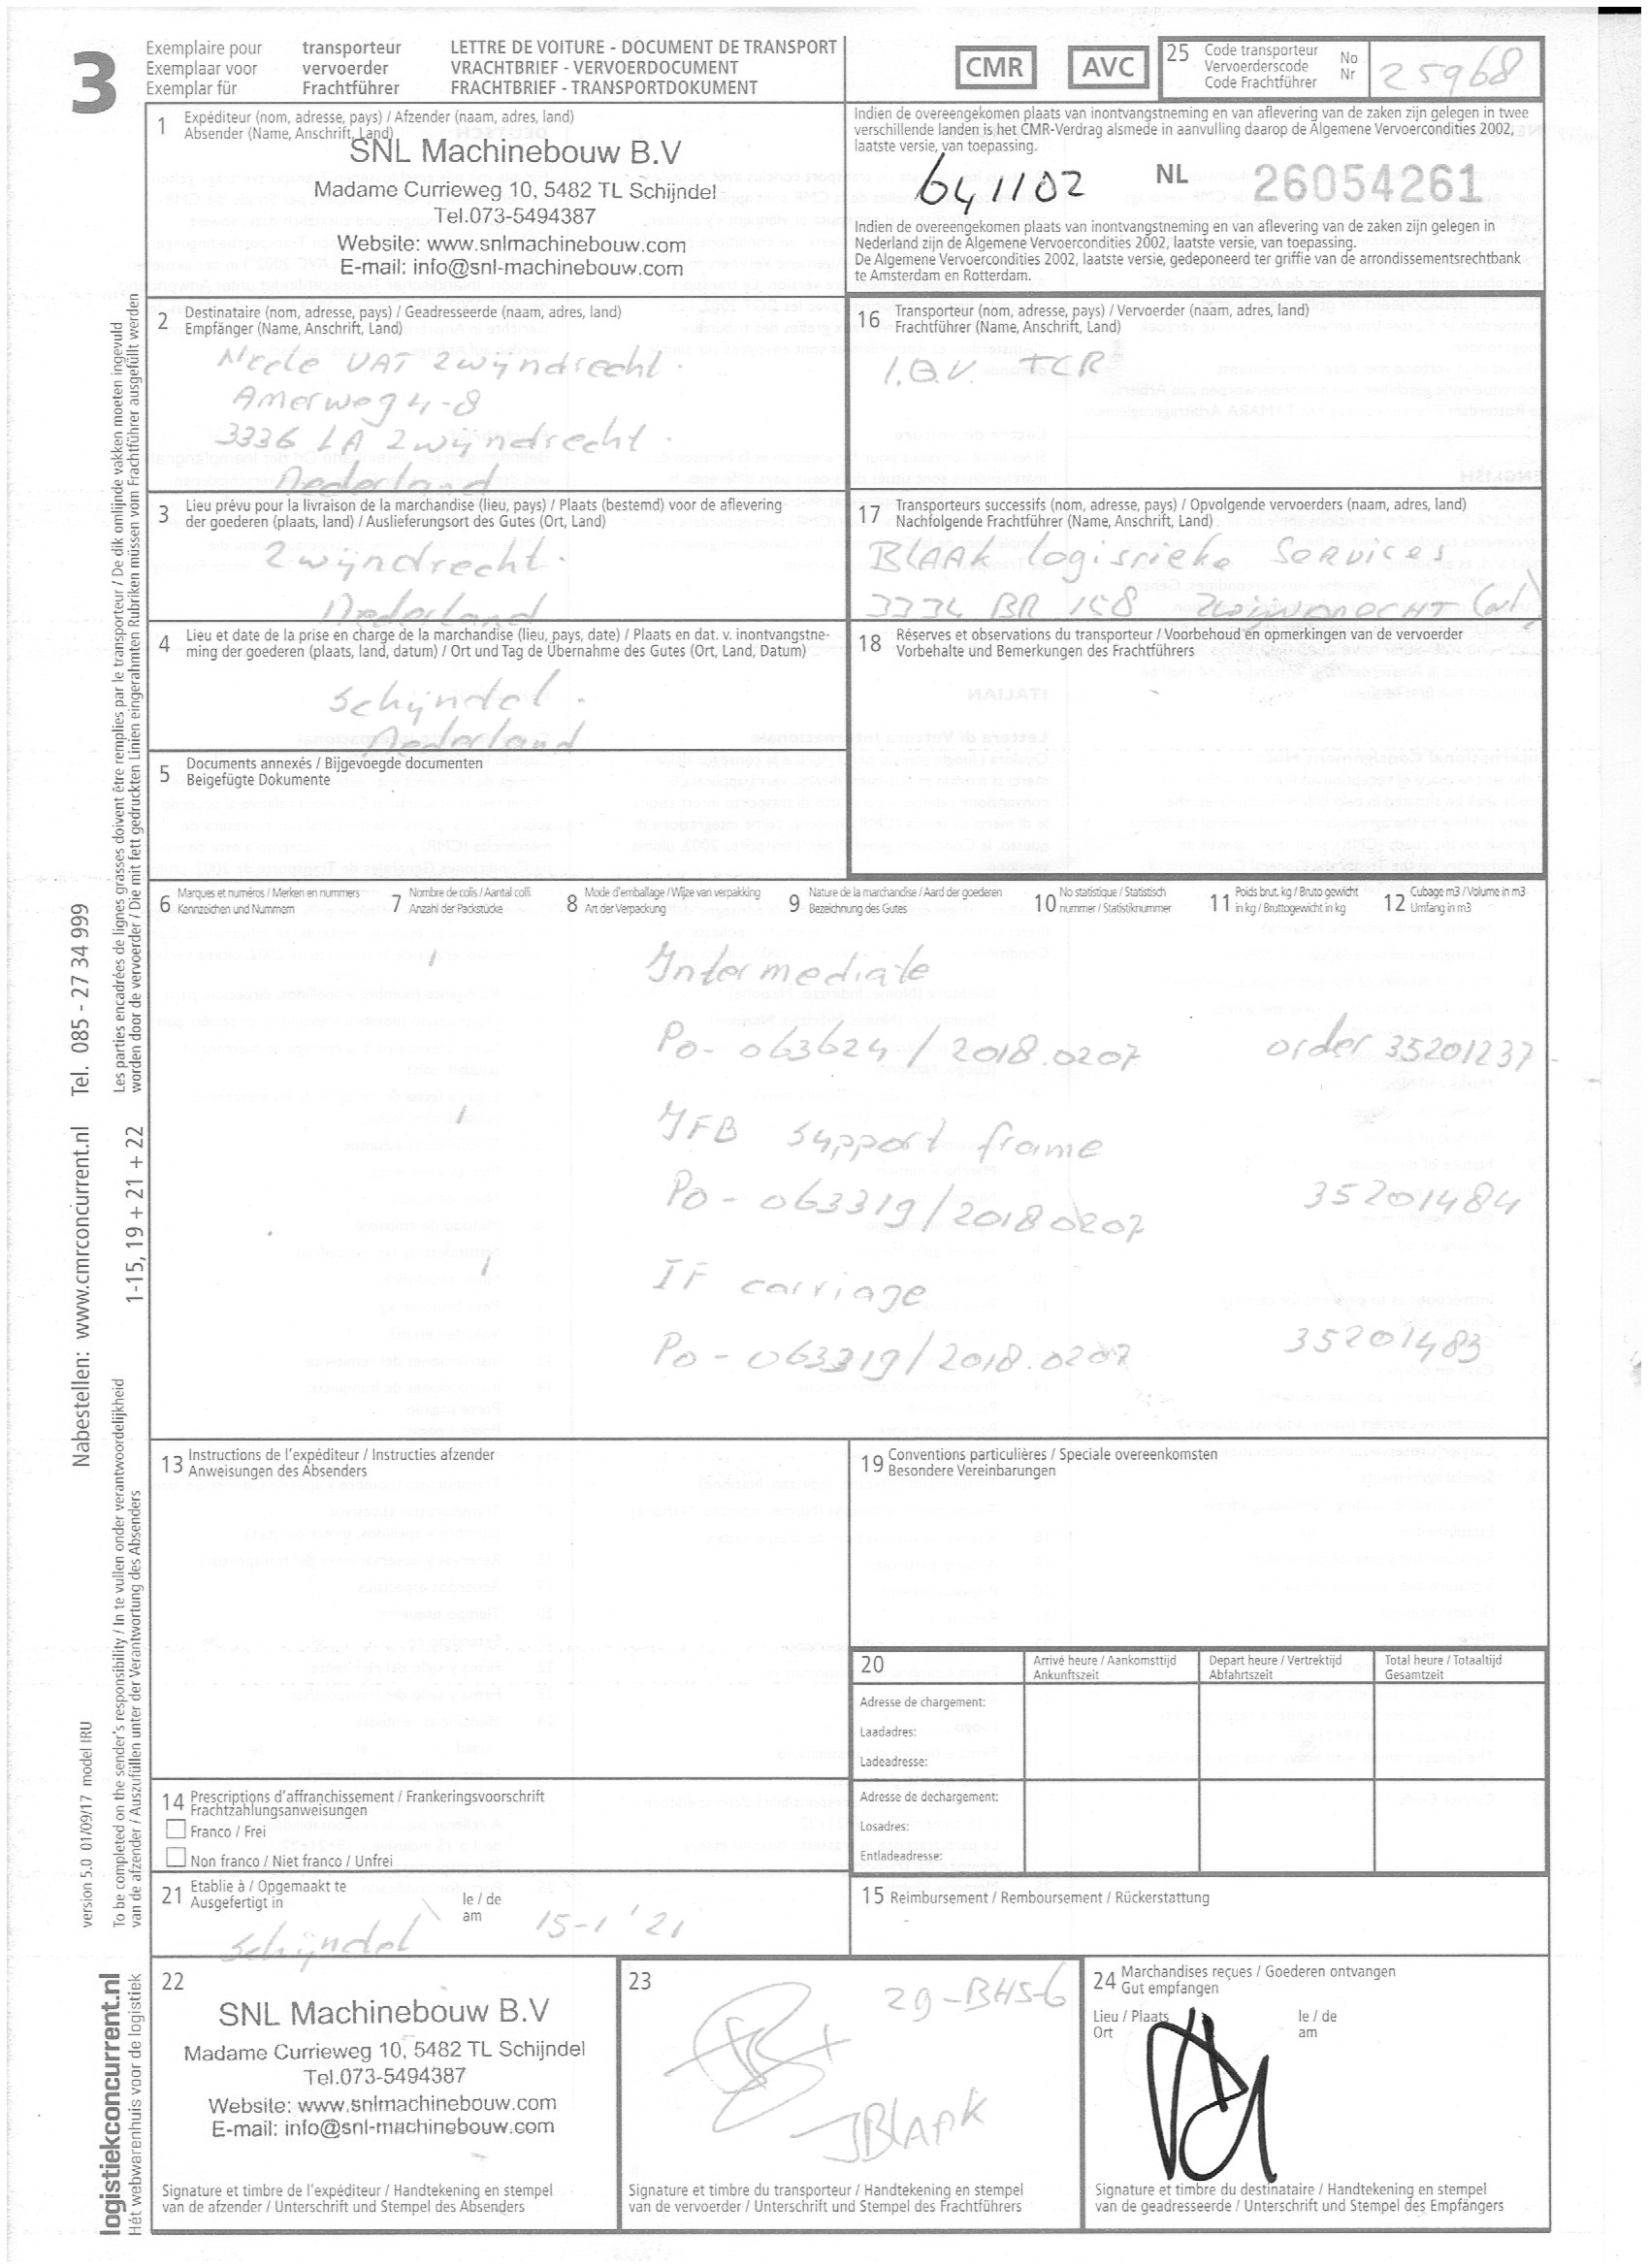 3
Exemplaire pour transporteur
Exemplaar voor vervoerder
Exemplar für Frachtführer
LETTRE DE VOITURE - DOCUMENT DE TRANSPORT
VRACHTBRIEF - VERVOERDOCUMENT
FRACHTBRIEF - TRANSPORTDOKUMENT
CMR
AVC
25 Code transporteur
Vervoerderscode
Code Frachtführer
No
Nr
25968
1 Expéditeur (nom, adresse, pays) / Afzender (naam, adres, land)
Absender (Name, Anschrift, Land)
SNL Machinebouw B.V
Madame Currieweg 10, 5482 TL Schijndel
Tel.073-5494387
Website: www.snlmachinebouw.com
E-mail: info@snl-machinebouw.com
Indien de overeengekomen plaats van inontvangstneming en van aflevering van de zaken zijn gelegen in twee
verschillende landen is het CMR-Verdrag alsmede in aanvulling daarop de Algemene Vervoercondities 2002,
laatste versie, van toepassing.
641102
NL 26054261
Indien de overeengekomen plaats van inontvangstneming en van aflevering van de zaken zijn gelegen in
Nederland zijn de Algemene Vervoercondities 2002, laatste versie, van toepassing.
De Algemene Vervoercondities 2002, laatste versie, gedeponeerd ter griffie van de arrondissementsrechtbank
te Amsterdam en Rotterdam.
2 Destinataire (nom, adresse, pays) / Geadresseerde (naam, adres, land)
Empfänger (Name, Anschrift, Land)
VAT Zwijndrecht.
Amerweg 4-8
3336 LA Zwijndrecht.
Nederland
16 Transporteur (nom, adresse, pays) / Vervoerder (naam, adres, land)
Frachtführer (Name, Anschrift, Land)
TCR
3 Lieu prévu pour la livraison de la marchandise (lieu, pays) / Plaats (bestemd) voor de aflevering
der goederen (plaats, land) / Auslieferungsort des Gutes (Ort, Land)
Zwijndrecht.
Nederland
17 Transporteurs successifs (nom, adresse, pays) / Opvolgende vervoerders (naam, adres, land)
Nachfolgende Frachtführer (Name, Anschrift, Land)
BLAAK Logistieke Services
3334 BR 158 ZWIJNDRECHT
4 Lieu et date de la prise en charge de la marchandise (lieu, pays, date) / Plaats en dat. v. inontvangstne-
ming der goederen (plaats, land, datum) / Ort und Tag de Übernahme des Gutes (Ort, Land, Datum)
Schijndel.
Nederland
18 Réserves et observations du transporteur / Voorbehoud en opmerkingen van de vervoerder
Vorbehalte und Bemerkungen des Frachtführers
5 Documents annexés / Bijgevoegde documenten
Beigefügte Dokumente
6 Marques et numéros / Merken en nummers
Kennzeichen und Nummern
7 Nombre de colis / Aantal colli
Anzahl der Packstücke
8 Mode d'emballage / Wijze van verpakking
Art der Verpackung
9 Nature de la marchandise / Aard der goederen
Bezeichnung des Gutes
10 No statistique / Statistisch
nummer / Statistiknummer
11 Poids brut. kg / Bruto gewicht
in kg / Bruttogewicht in kg
12 Cubage m3 / Volume in m3
Umfang in m3
1 Intermediate
Po- 063624 / 2018.0207 order 35201237
1 IFB support frame
Po - 063319/20180207 35201484
1 IF carriage
Po - 063319/2018.0207 35201483
13 Instructions de l'expéditeur / Instructies afzender
Anweisungen des Absenders
19 Conventions particulières / Speciale overeenkomsten
Besondere Vereinbarungen
20 Arrivé heure / Aankomsttijd
Ankunftszeit
Depart heure / Vertrektijd
Abfahrtszeit
Total heure / Totaaltijd
Gesamtzeit
Adresse de chargement:
Laadadres:
Ladeadresse:
Adresse de dechargement:
Losadres:
Entladeadresse:
14 Prescriptions d'affranchissement / Frankeringsvoorschrift
Frachtzahlungsanweisungen
Franco / Frei
Non franco / Niet franco / Unfrei
21 Etablie à / Opgemaakt te
Ausgefertigt in
le / de
am
Schijndel 15-1 '21
15 Reimbursement / Remboursement / Rückerstattung
22
SNL Machinebouw B.V
Madame Currieweg 10, 5482 TL Schijndel
Tel.073-5494387
Website: www.snlmachinebouw.com
E-mail: info@snl-machinebouw.com
Signature et timbre de l'expéditeur / Handtekening en stempel
van de afzender / Unterschrift und Stempel des Absenders
23
29-BHS-6
JBlaak
Signature et timbre du transporteur / Handtekening en stempel
van de vervoerder / Unterschrift und Stempel des Frachtführers
24 Marchandises reçues / Goederen ontvangen
Gut empfangen
Lieu / Plaats
Ort
le / de
am
Signature et timbre du destinataire / Handtekening en stempel
van de geadresseerde / Unterschrift und Stempel des Empfängers
Nabestellen: www.cmrconcurrent.nl Tel. 085 - 27 34 999
Les parties encadrées de lignes grasses doivent être remplies par le transporteur / De dik omlijnde vakken moeten ingevuld
worden door de vervoerder / Die mit fett gedruckten Linien eingerahmten Rubriken müssen vom Frachtführer ausgefüllt werden
1-15, 19 + 21 + 22
version 5.0 01/09/17 model IRU
To be completed on the sender's responsibility / In te vullen onder verantwoordelijkheid
van de afzender / Auszufüllen unter der Verantwortung des Absenders
logistiekconcurrent.nl
Hét webwarenhuis voor de logistiek